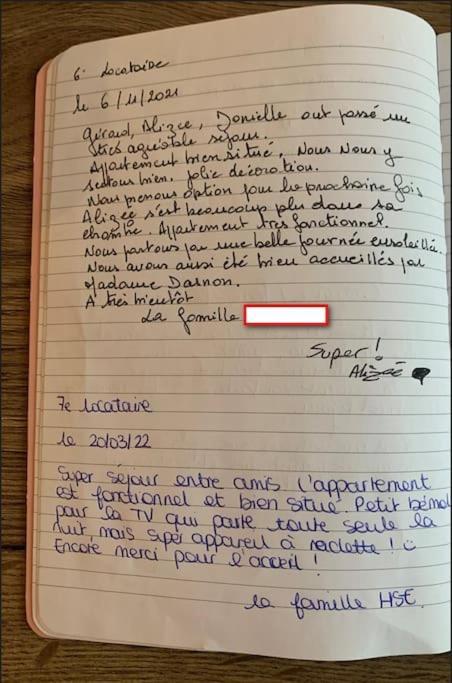 6e Locataire
le 6/11/2021
Gérard, Alizée, Danielle ont passé un
très agréable séjour.
Appartement bien situé, Nous Nous y
sentons bien. jolie décoration.
Nous prenons option pour la prochaine fois
Alizée s'est beaucoup plu dans sa
chambre. Appartement très fonctionnel.
Nous partons par une belle journée ensoleillée.
Nous avons aussi été bien accueillés par
Madame
A très bientôt
La famille
Super !
Alizée
7e locataire
le 20/03/22
Super séjour entre amis l'appartement
est fonctionnel et bien situé. Petit bémol
pour la TV qui parle toute seule la
nuit, mais super appareil à raclette !
Encore merci pour l'acceil !
la famille HSE.